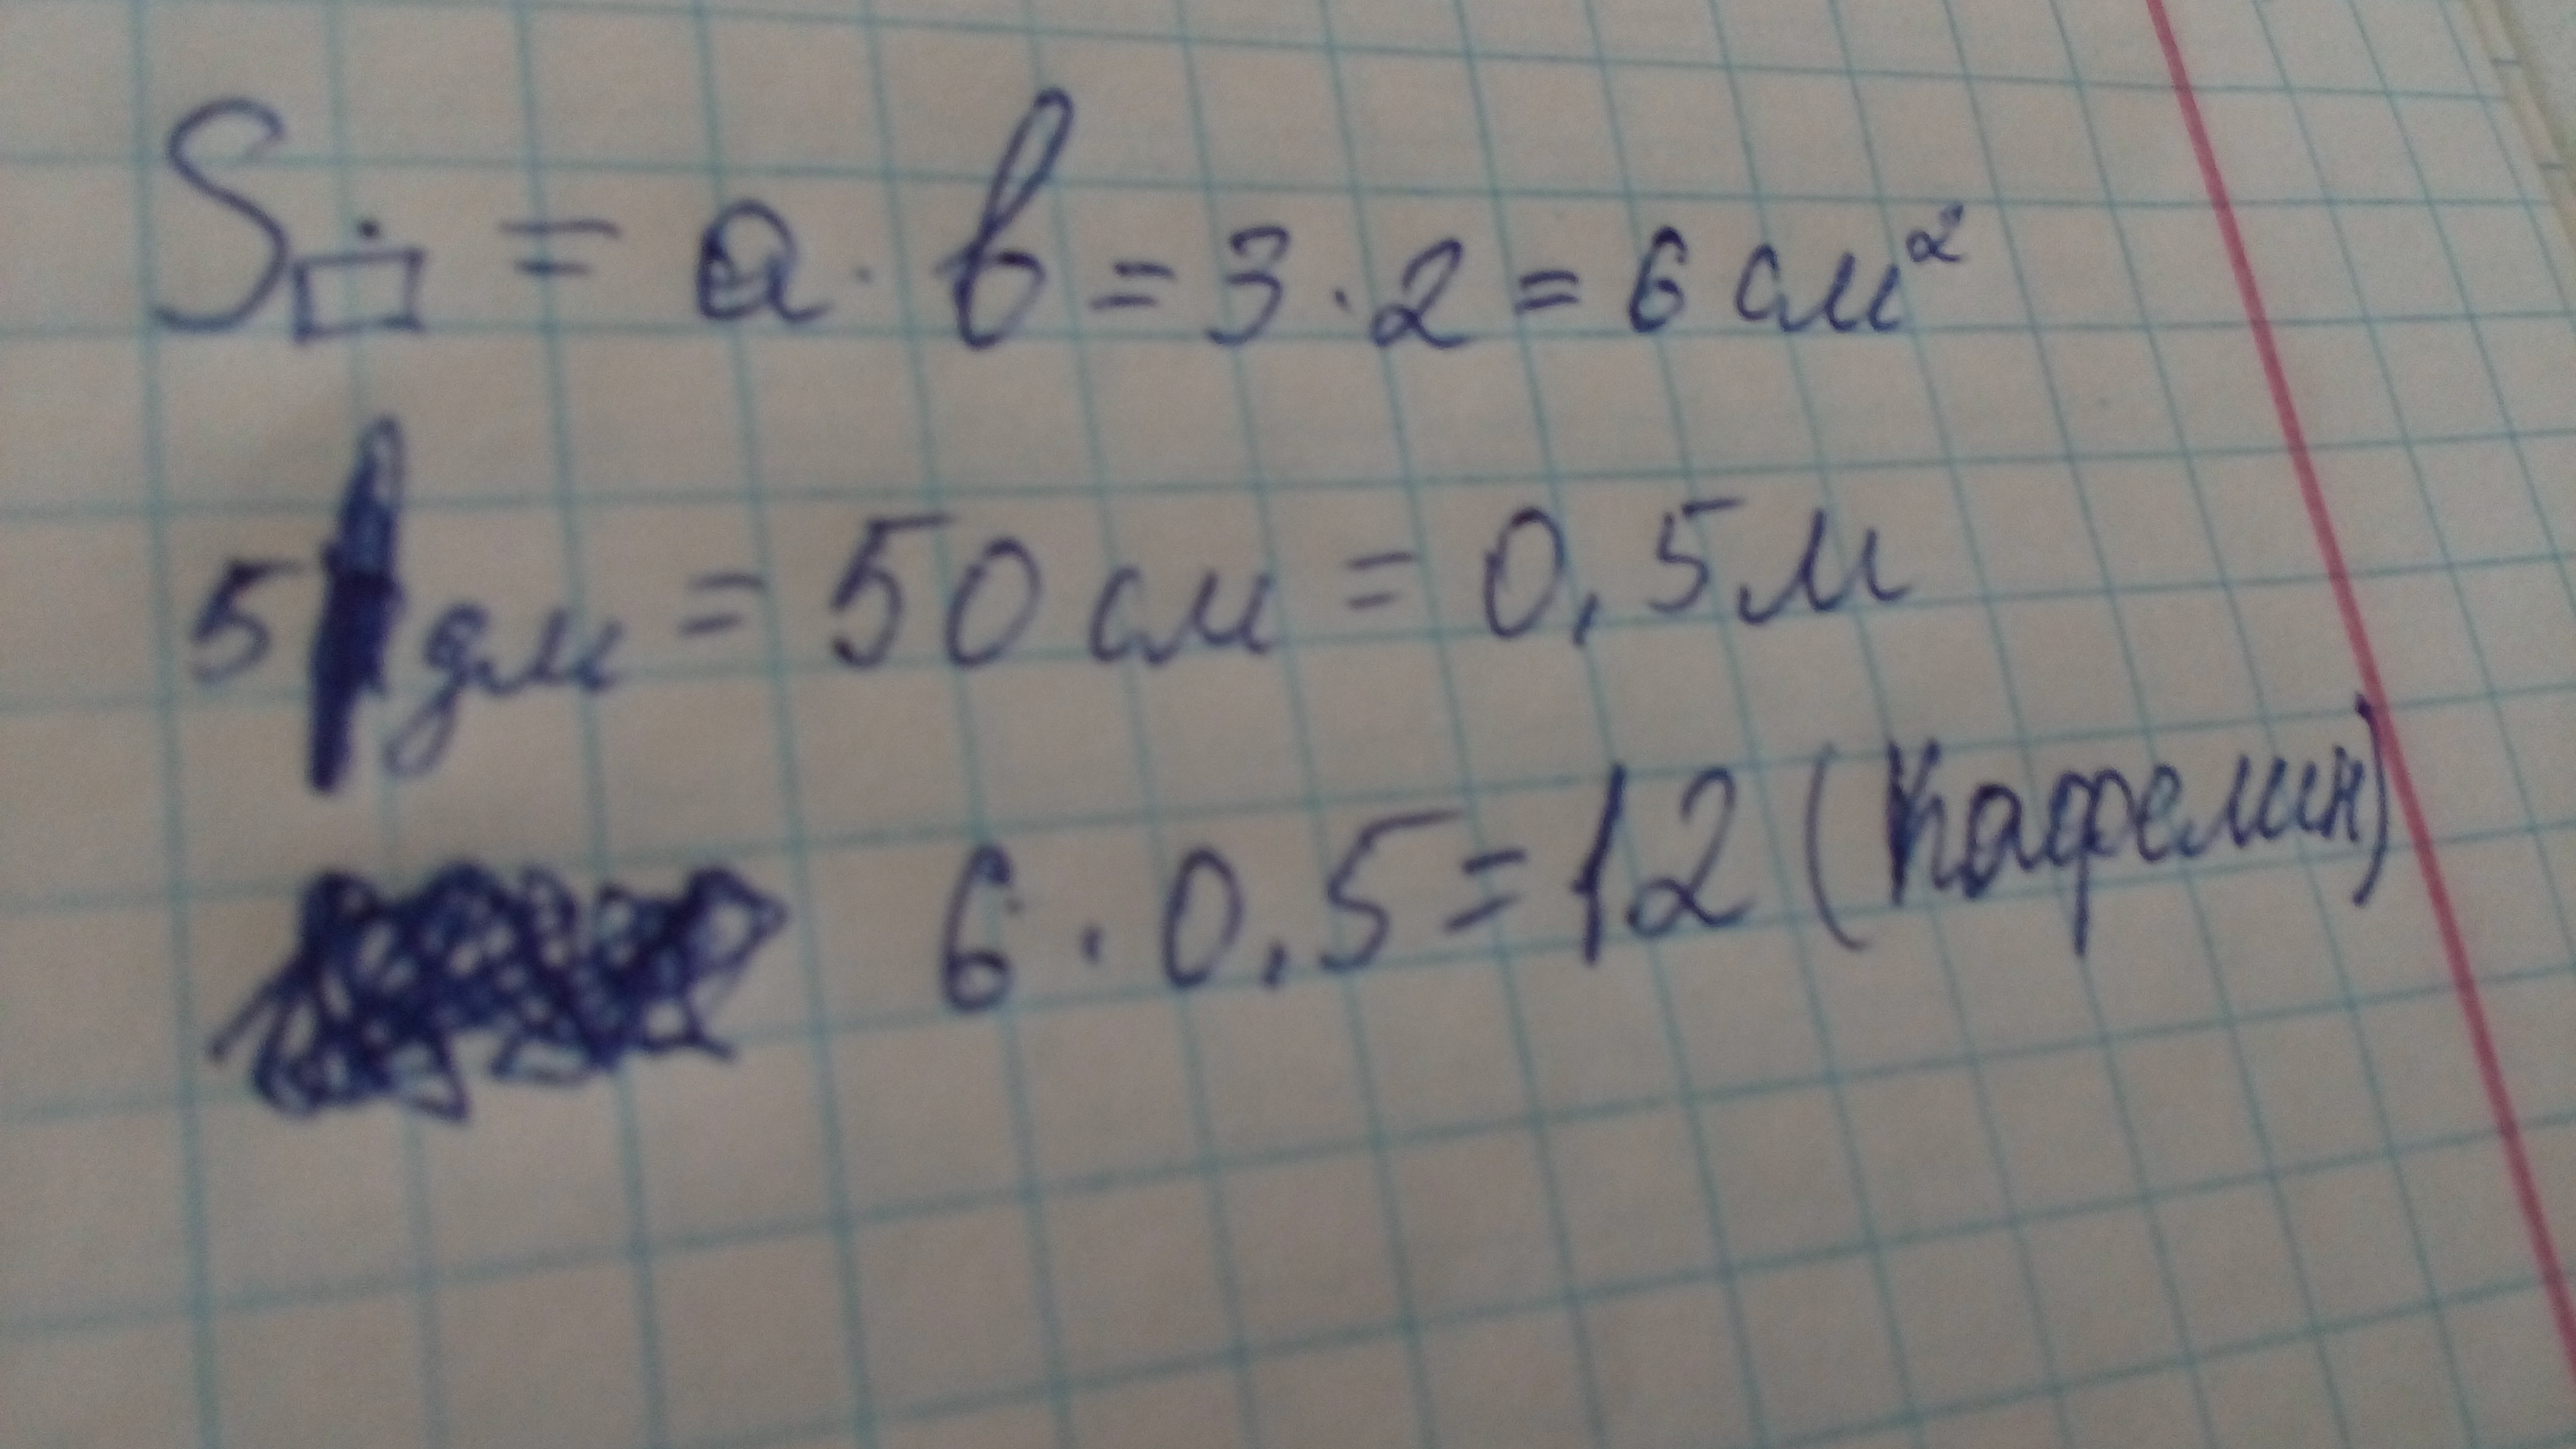 S▭ = a · b = 3 · 2 = 6 см²
5 дм = 50 см = 0,5м
6 · 0,5 = 12 (Кафелин)